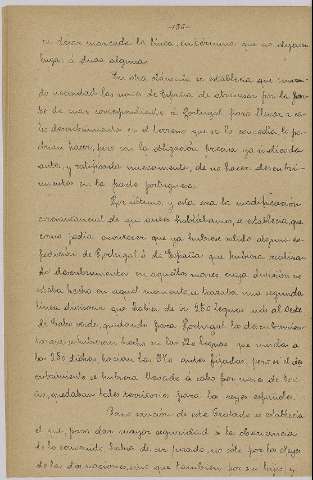 -135-
se dejar marcada la línea, en término que no dejara
lugar a duda alguna.
En otra cláusula se establecía que cuando
necesidad las naves de España de atravesar por la par-
te de mar correspondiente a Portugal para llegar a es-
te descubrimiento en el terreno que se le concedía lo po-
drían hacer, pero con la obligación precisa ya indicada
antes, y ratificada nuevamente, de no hacer descubri-
mientos en la parte portuguesa.
Por último, y esta era la modificación
circunstancial de que antes hablábamos, se establecía, que
como podía acontecer que ya hubiese salido alguna ex-
pedición de Portugal ó de España que hubiera realiza-
do descubrimientos en aquellos mares cuya división se
estaba hecha en aquel momento, se trazaba una segunda
línea divisoria que había de ir 250 leguas más al Oeste
de Cabo verde, quedando para Portugal los descubrimien-
tos que se hubieren hecho en las 120 leguas que unidas a
las 250 dichas hacían las 370 antes fijadas, pero si el des-
cubrimiento se hubiera llevado á cabo por naves de
quedaban tales territorios para los reyes españoles.
Como sanción de este Tratado se establecía
el que, para dar mayor seguridad a la observancia
de lo convenido había de ser jurado, no sólo por los Reyes
de las dos naciones, sino que también por sus hijos, y